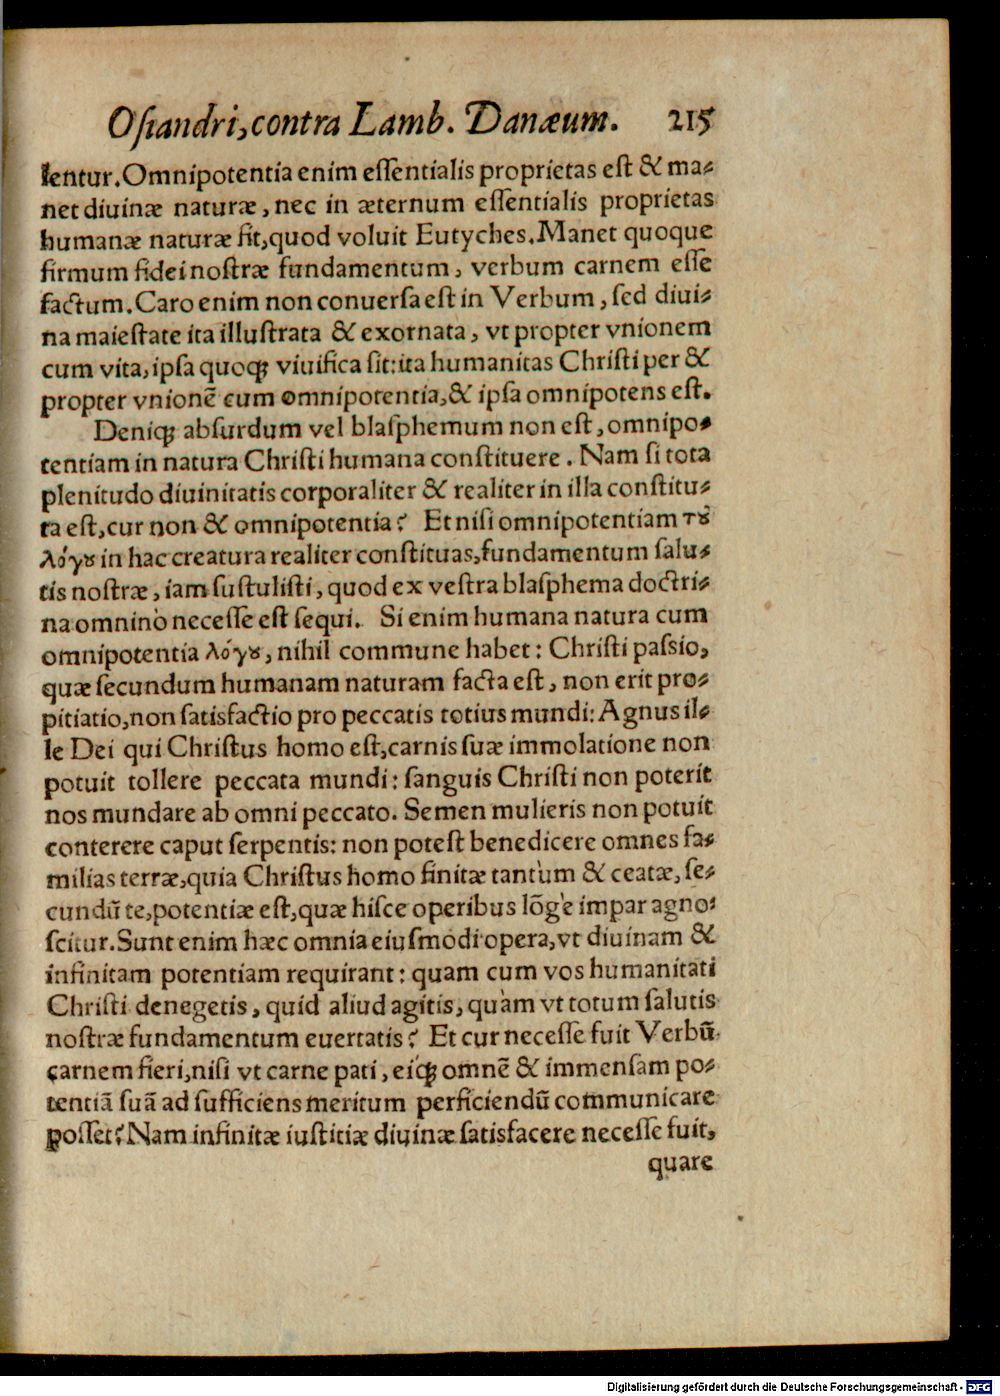 Oſiandri, contra Lamb. Danæum. 215
lentur. Omnipotentia enim eſſentialis proprietas eſt & ma-
net diuinæ naturæ, nec in æternum eſſentialis proprietas
humanæ naturæ fit, quod voluit Eutyches. Manet quoque
firmum fidei noſtræ fundamentum, verbum carnem eſſe
factum. Caro enim non conuerſa eſt in Verbum, ſed diui-
na maieſtate ita illuſtrata & exornata, vt propter vnionem
cum vita, ipſa quoq; viuifica ſit: ita humanitas Chriſti per &
propter vnionē cum omnipotentia, & ipſa omnipotens eſt.
Deniq; abſurdum vel blaſphemum non eſt, omnipo-
tentiam in natura Chriſti humana conſtituere. Nam ſi tota
plenitudo diuinitatis corporaliter & realiter in illa conſtitu-
ta eſt, cur non & omnipotentia? Et niſi omnipotentiam τȣ͂
λόγȣ in hac creatura realiter conſtituas, fundamentum ſalu-
tis noſtræ, iam ſuſtuliſti, quod ex veſtra blaſphema doctri-
na omninò neceſſe eſt ſequi. Si enim humana natura cum
omnipotentia λόγȣ, nihil commune habet: Chriſti paſsio,
quæ ſecundum humanam naturam facta eſt, non erit pro-
pitiatio, non ſatisfactio pro peccatis totius mundi: Agnus il-
le Dei qui Chriſtus homo eſt, carnis ſuæ immolatione non
potuit tollere peccata mundi: ſanguis Chriſti non poterit
nos mundare ab omni peccato. Semen mulieris non potuit
conterere caput ſerpentis: non poteſt benedicere omnes fa-
milias terræ, quia Chriſtus homo finitæ tantùm & ceatæ, ſe-
cundū te, potentiæ eſt, quæ hiſce operibus lōgè impar agno-
ſcitur. Sunt enim hæc omnia eiuſmodi opera, vt diuinam &
infinitam potentiam requirant: quam cum vos humanitati
Chriſti denegetis, quid aliud agitis, quàm vt totum ſalutis
noſtræ fundamentum euertatis? Et cur neceſſe fuit Verbū
carnem fieri, niſi vt carne pati, eiq; omnē & immenſam po-
tentiā ſuā ad ſufficiens meritum perficiendū communicare
poſſet? Nam infinitæ iuſtitiæ diuinæ ſatisfacere neceſſe fuit,
quare
Digitalisierung gefördert durch die Deutsche Forschungsgemeinschaft - DFG